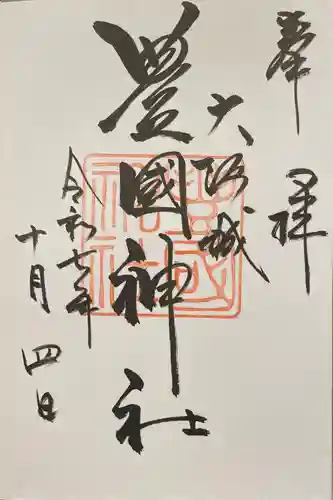 奉拝
大阪城
豊國神社
令和七年
十月四日
豊國神社